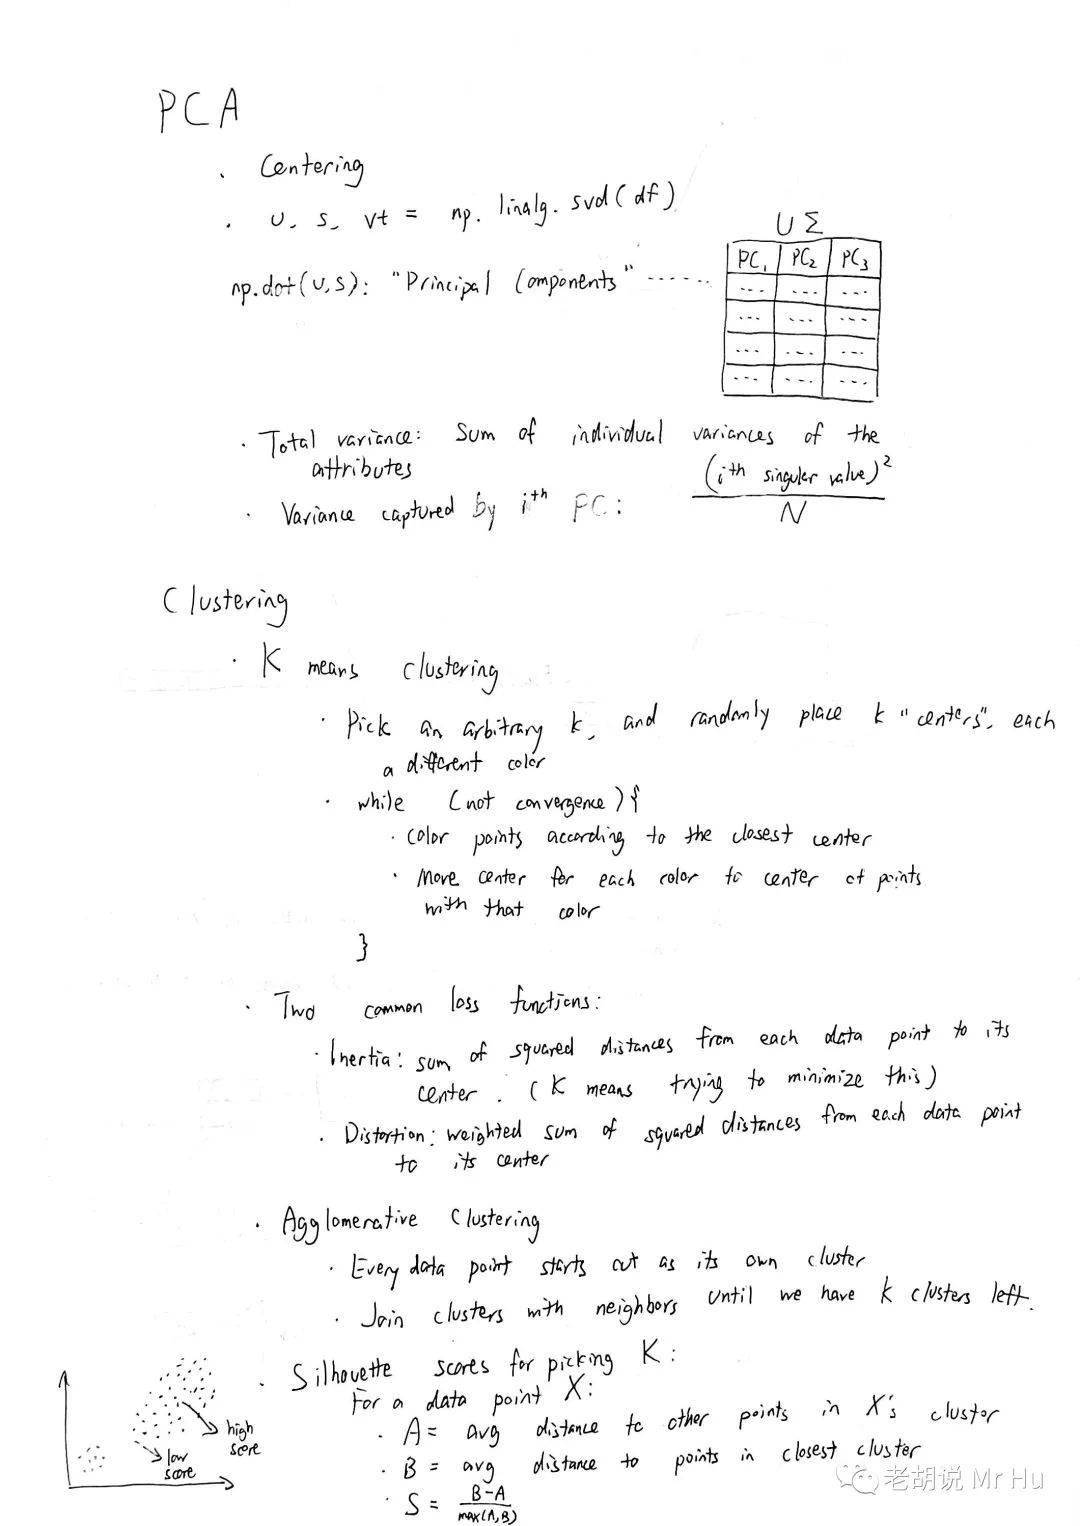 PCA
· Centering
· u, s, vt = np.linalg.svd(df)
UΣ
np.dot(u,s): "Principal Components" ......
PC1 PC2 PC3
... ... ...
... ... ...
... ... ...
... ... ...
· Total variance: Sum of individual variances of the
attributes
· Variance captured by i^th PC: (i^th singular value)^2 / N
Clustering
· K means clustering
· Pick an arbitrary k, and randomly place k "centers", each
a different color
· while (not convergence) {
· color points according to the closest center
· Move center for each color to center of points
with that color
}
· Two common loss functions:
· Inertia: sum of squared distances from each data point to its
center. (K means trying to minimize this)
· Distortion: weighted sum of squared distances from each data point
to its center
· Agglomerative Clustering
· Every data point starts out as its own cluster
· Join clusters with neighbors until we have K clusters left.
· Silhouette scores for picking K:
For a data point X:
· A = avg distance to other points in X's cluster
· B = avg distance to points in closest cluster
· S = B-A / max(A,B)
high
score
low
score
老胡说 Mr Hu